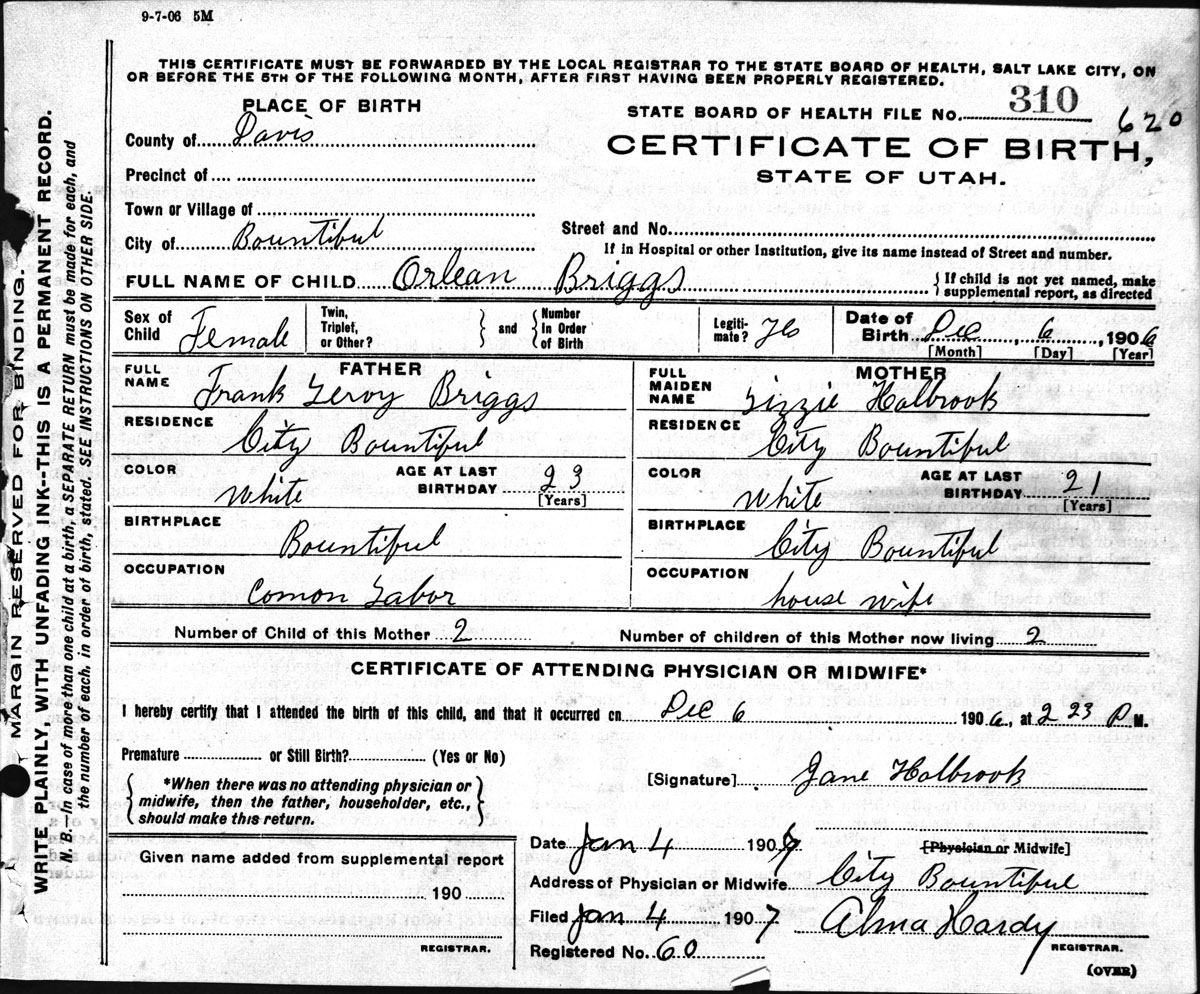 9-7-06 5M
THIS CERTIFICATE MUST BE FORWARDED BY THE LOCAL REGISTRAR TO THE STATE BOARD OF HEALTH, SALT LAKE CITY, ON
OR BEFORE THE 5TH OF THE FOLLOWING MONTH, AFTER FIRST HAVING BEEN PROPERLY REGISTERED.
PLACE OF BIRTH
STATE BOARD OF HEALTH FILE No. 310
620
County of Davis
CERTIFICATE OF BIRTH,
STATE OF UTAH.
Precinct of
Town or Village of
Street and No.
City of Bountiful
If in Hospital or other Institution, give its name instead of Street and number.
FULL NAME OF CHILD Orlean Briggs
{ If child is not yet named, make
supplemental report, as directed
Sex of Child Female
Twin, Triplet, or Other? } and { Number In Order of Birth
Legitimate? Yes
Date of Birth Dec 6, 1906
[Month] [Day] [Year]
FATHER
FULL NAME Frank Leroy Briggs
RESIDENCE City Bountiful
COLOR White
AGE AT LAST BIRTHDAY 23
[Years]
BIRTHPLACE Bountiful
OCCUPATION Comon Labor
MOTHER
FULL MAIDEN NAME Lizzie Holbrook
RESIDENCE City Bountiful
COLOR White
AGE AT LAST BIRTHDAY 21
[Years]
BIRTHPLACE City Bountiful
OCCUPATION house wife
Number of Child of this Mother 2
Number of children of this Mother now living 2
CERTIFICATE OF ATTENDING PHYSICIAN OR MIDWIFE*
I hereby certify that I attended the birth of this child, and that it occurred on Dec 6 1906, at 2 23 P M.
Premature or Still Birth? (Yes or No)
{ *When there was no attending physician or
midwife, then the father, householder, etc.,
should make this return. }
[Signature] Jane Holbrook
[Physician or Midwife]
Date Jan 4 1907
Address of Physician or Midwife City Bountiful
Filed Jan 4 1907 Alma Hardy
REGISTRAR.
Registered No. 60
(OVER)
Given name added from supplemental report
190
REGISTRAR.
MARGIN RESERVED FOR BINDING.
WRITE PLAINLY, WITH UNFADING INK--THIS IS A PERMANENT RECORD.
N. B.—In case of more than one child at a birth, a SEPARATE RETURN must be made for each, and
the number of each, in order of birth, stated. SEE INSTRUCTIONS ON OTHER SIDE.